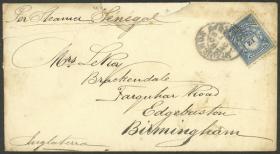 Per Steamer Senegal
Mrs. Le Nia
Brackendale
Farquhar Road
Edgebaston
Birmingham
Inglaterra